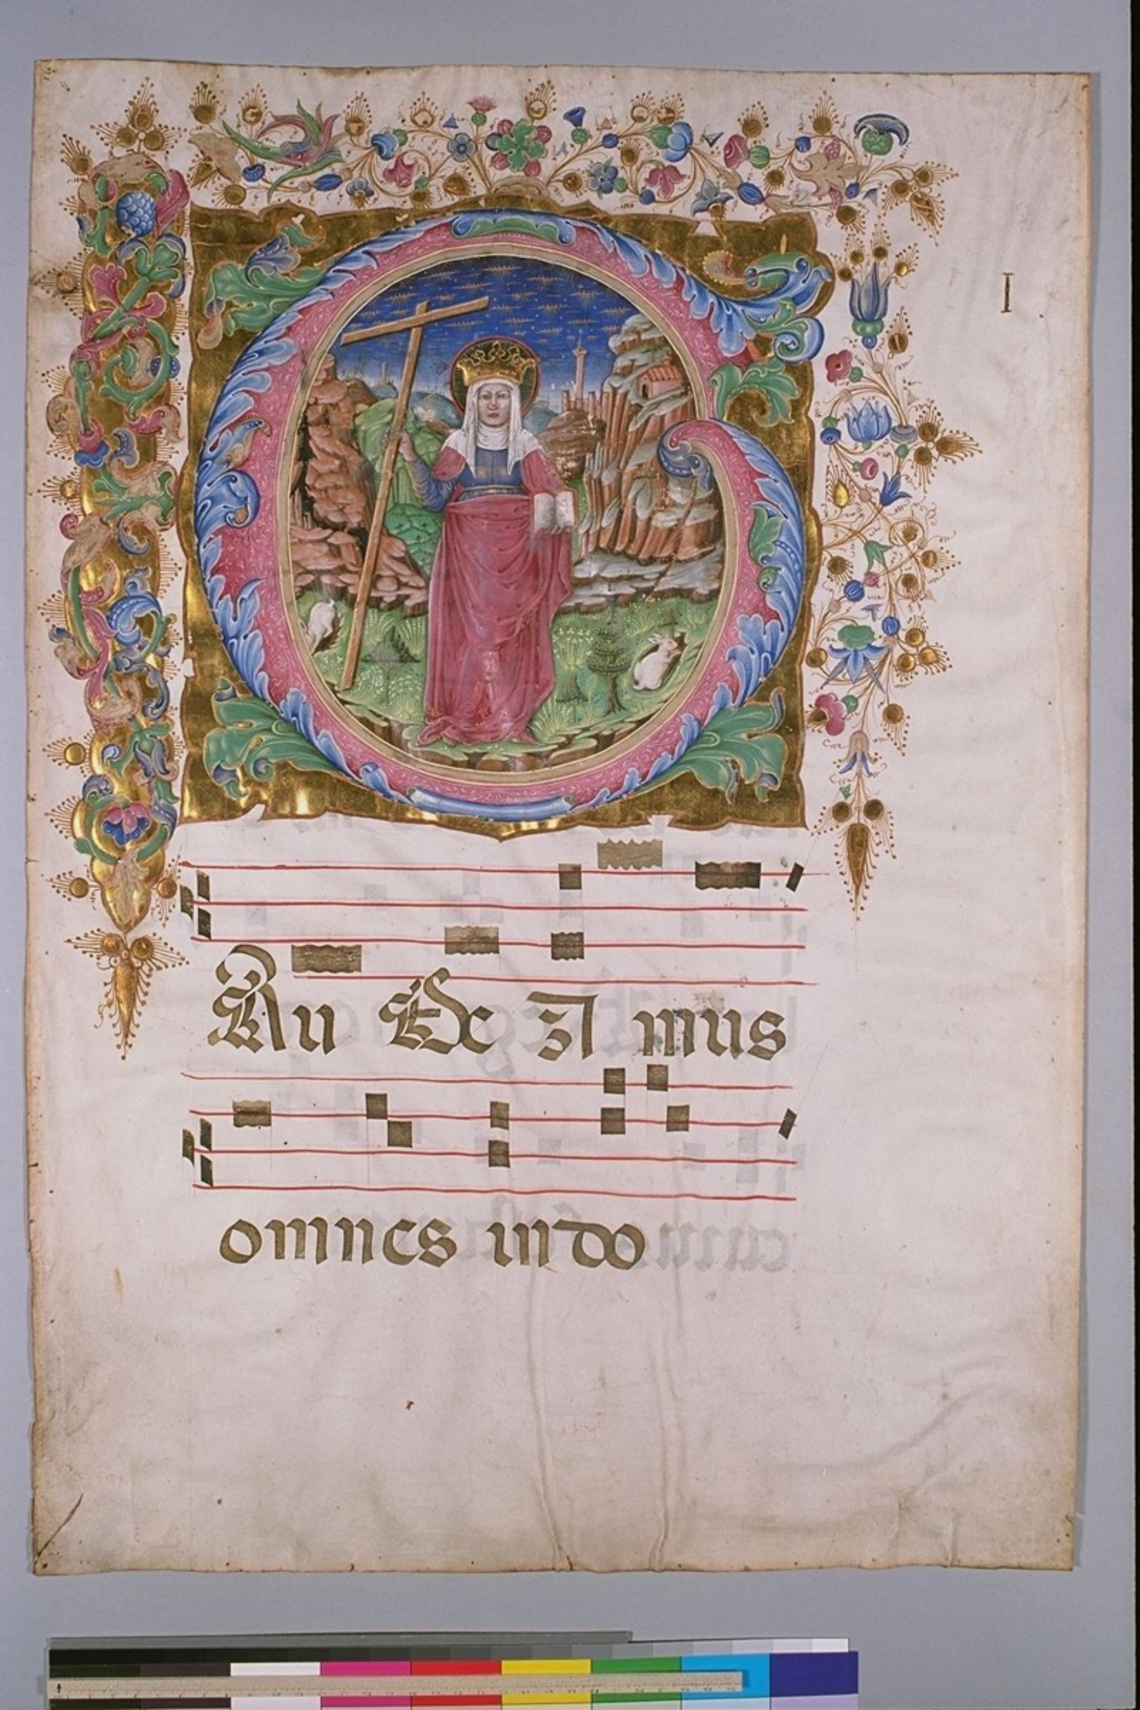 I
G
Au De A mus
omnes in do